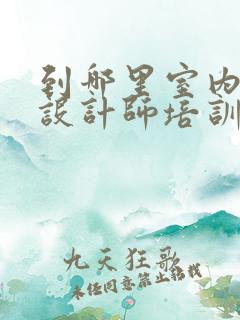 到哪里室内
設計師培訓
九天狂歌
未经同意禁止转载